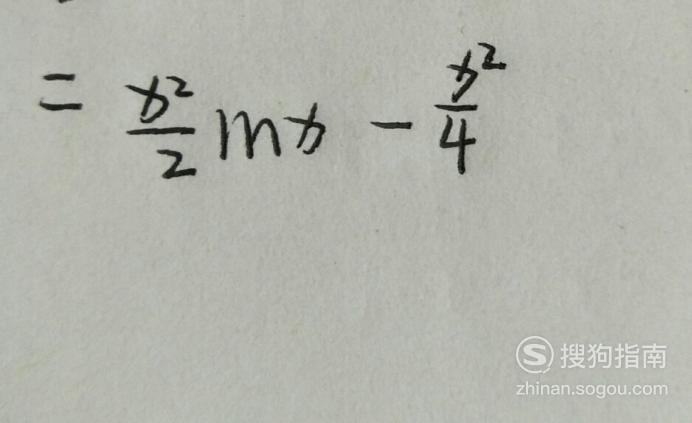 = x²/2 lnx - x²/4
S 搜狗指南
zhinan.sogou.com